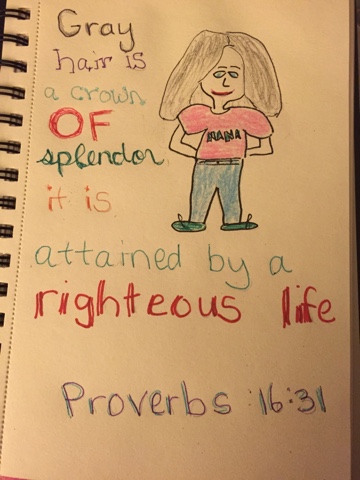 Gray
hair is
a crown
OF
splendor
it is
NANA
attained by a
righteous life
Proverbs 16:31